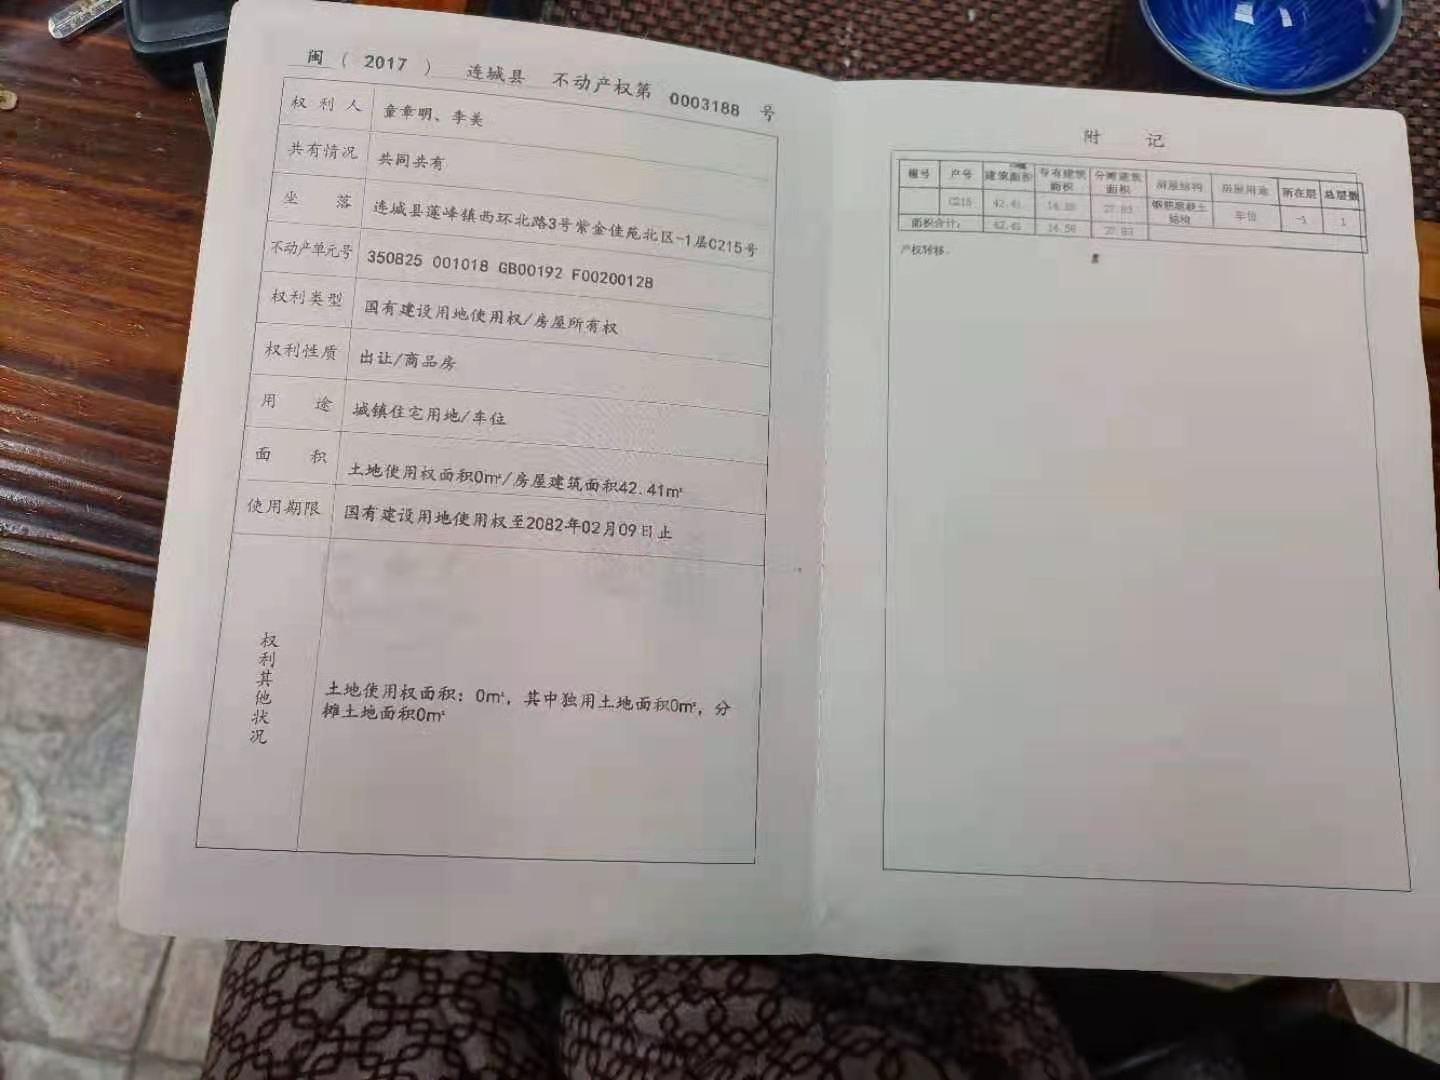 闽（ 2017 ） 连城县 不动产权第 0003188 号
权利人 童章明、李美
共有情况 共同共有
坐落 连城县莲峰镇西环北路3号紫金佳苑北区-1层C215号
不动产单元号 350825 001018 GB00192 F00200128
权利类型 国有建设用地使用权/房屋所有权
权利性质 出让/商品房
用途 城镇住宅用地/车位
面积 土地使用权面积0㎡/房屋建筑面积42.41㎡
使用期限 国有建设用地使用权至2082年02月09日止
权利其他状况
土地使用权面积：0㎡，其中独用土地面积0㎡，分
摊土地面积0㎡
附 记
幢号 户号 建筑面积 专有建筑面积 分摊建筑面积 房屋结构 房屋用途 所在层 总层数
C215 42.41 14.58 27.83 钢筋混凝土结构 车位 -1 1
面积合计： 42.41 14.58 27.83
产权转移.